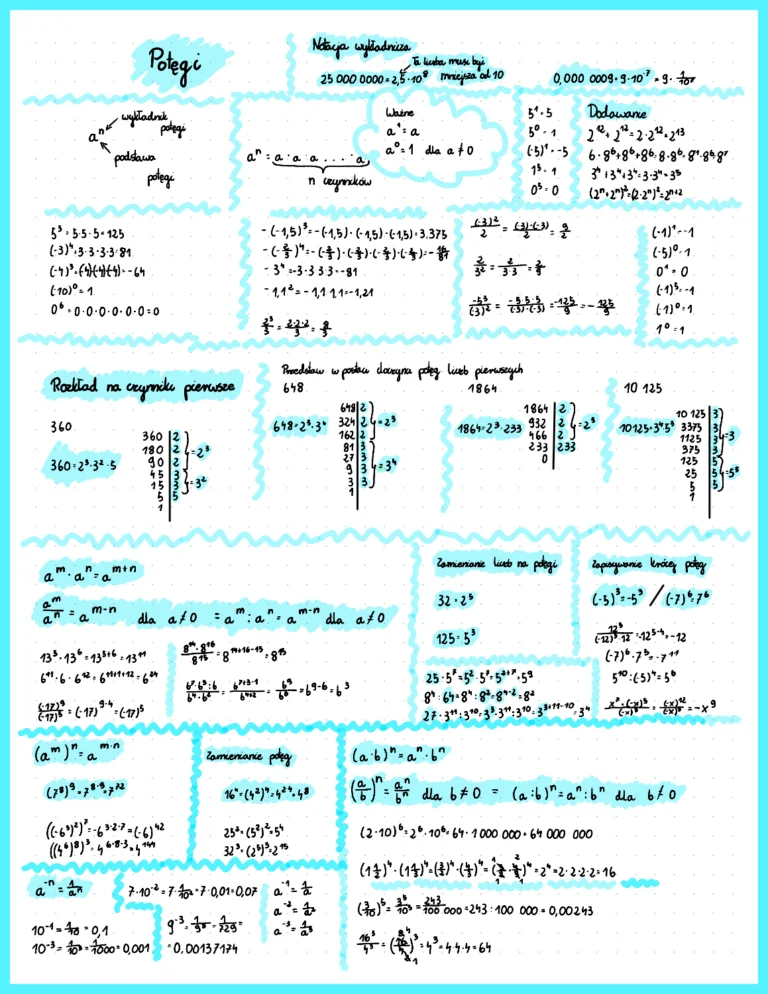 Potęgi
Notacja wykładnicza
Ta liczba musi być
mniejsza od 10
25 000 0000=2,5·10⁸
0,000 0009=9·10⁻⁷=9·1/10⁷
aⁿ
wykładnik
potęgi
podstawa
potęgi
aⁿ=a·a·a....·a
n czynników
Ważne
a¹=a
a⁰=1 dla a≠0
5¹=5
5⁰=1
(-5)¹=-5
1⁵=1
0⁵=0
Dodawanie
2¹²+2¹²=2·2¹²=2¹³
3⁴+3⁴+3⁴=3·3⁴=3⁵
(2ⁿ+2ⁿ)²=(2·2ⁿ)²=2ⁿ⁺²
5³=5·5·5=125
(-3)⁴=3·3·3·3=81
(-4)³=(-4)(-4)(-4)=-64
(-10)⁰=1
0⁶=0·0·0·0·0·0=0
-(-1,5)³=-(-1,5)·(-1,5)·(-1,5)=3.375
-(-2/3)⁴=-(-2/3)·(-2/3)·(-2/3)·(-2/3)=-16/81
-3⁴=-3·3·3·3=-81
-1,1²=-1,1·1,1=-1,21
2³/3=2·2·2/3=8/3
(-3)²/2=(-3)·(-3)/2=9/2
2/3²=2/3·3=2/9
-5³/(-3)²=-5·5·5/(-3)·(-3)=-125/9=-125/9
(-1)¹=-1
(-5)⁰=1
0¹=0
(-1)⁵=-1
(-1)⁰=1
1⁰=1
Rozkład na czynniki pierwsze
360
360=2³·3²·5
360 2
180 2
90 2
45 3
15 3
5 5
1
=2³
=3²
Przedstaw w postaci iloczynu potęg liczb pierwszych
648
648=2³·3⁴
648 2
324 2
162 2
81 3
27 3
9 3
3 3
1
=2³
=3⁴
1864
1864=2³·233
1864 2
932 2
466 2
233 233
0
=2³
10 125
10125=3⁴5³
10 125 3
3375 3
1125 3
375 3
125 5
25 5
5 5
1
=3
=5³
aᵐ·aⁿ=aᵐ⁺ⁿ
aᵐ/aⁿ=aᵐ⁻ⁿ dla a≠0 =aᵐ:aⁿ=aᵐ⁻ⁿ dla a≠0
13⁵·13⁶=13⁵⁺⁶=13¹¹
6¹¹·6·6¹²=6¹¹⁺¹⁺¹²=6²⁴
(-17)⁹/(-17)⁵=(-17)⁹⁻⁴=(-17)⁵
8¹⁴·8¹⁶/8¹⁵=8¹⁴⁺¹⁶⁻¹⁵=8¹⁵
6⁷·6³:6/6⁴·6²=6⁷⁺³⁻¹/6⁴⁺²=6⁹/6⁶=6⁹⁻⁶=6³
Zamienianie liczb na potęgi
32=2⁵
125=5³
25·5⁷=5²·5⁷=5²⁺⁷=5⁹
8⁴:64=8⁴:8²=8⁴⁻²=8²
27·3¹¹:3¹⁰=3³·3¹¹:3¹⁰=3³⁺¹¹⁻¹⁰=3⁴
Zapisywanie krócej potęg
(-5)³=-5³ / (-7)⁶=7⁶
12⁵/(-12)³·12=-12⁵⁻⁴=-12
(-7)⁶·7⁵=-7¹¹
5¹⁰:(-5)⁴=5⁶
x⁷·(-x)⁵/(-x)³=(-x)¹²/(-x)³=-x⁹
(aᵐ)ⁿ=aᵐ·ⁿ
(7⁸)⁹=7⁸·⁹=7⁷²
((-6³)²)⁷=-6³·²·⁷=(-6)⁴²
((4⁶)⁸)³=4⁶·⁸·³=4¹⁴⁴
Zamienianie potęg
16⁴=(4²)⁴=4²·⁴=4⁸
25²=(5²)²=5⁴
32³=(2⁵)³=2¹⁵
(a·b)ⁿ=aⁿ·bⁿ
(a/b)ⁿ=aⁿ/bⁿ dla b≠0 = (a:b)ⁿ=aⁿ:bⁿ dla b≠0
(2·10)⁶=2⁶·10⁶=64·1 000 000=64 000 000
=2⁴=2·2·2·2=16
(3/10)⁵=3⁵/10⁵=243/100 000=243:100 000=0,00243
16³/4³=(16/4)³=4³=4·4·4=64
a⁻ⁿ=1/aⁿ
10⁻¹=1/10=0,1
10⁻³=1/10³=1/1000=0,001
7·10⁻²=7·1/10²=7·0,01=0,07
9⁻³=1/9³=1/729=
=0,00137174
a⁻¹=1/a
a⁻²=1/a²
a⁻³=1/a³